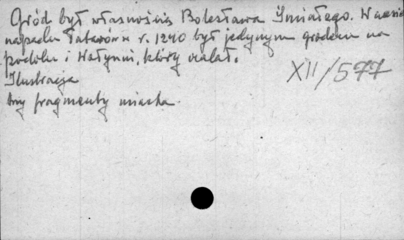 Gród był własnością Bolesława Śmiałego. W czasie
napadu Tatarów w r. 1240 był jedynym grodem na
podolu i Wołyniu, który ocalał.
XII/577
Ilustracja
trzy fragmenty miasta.